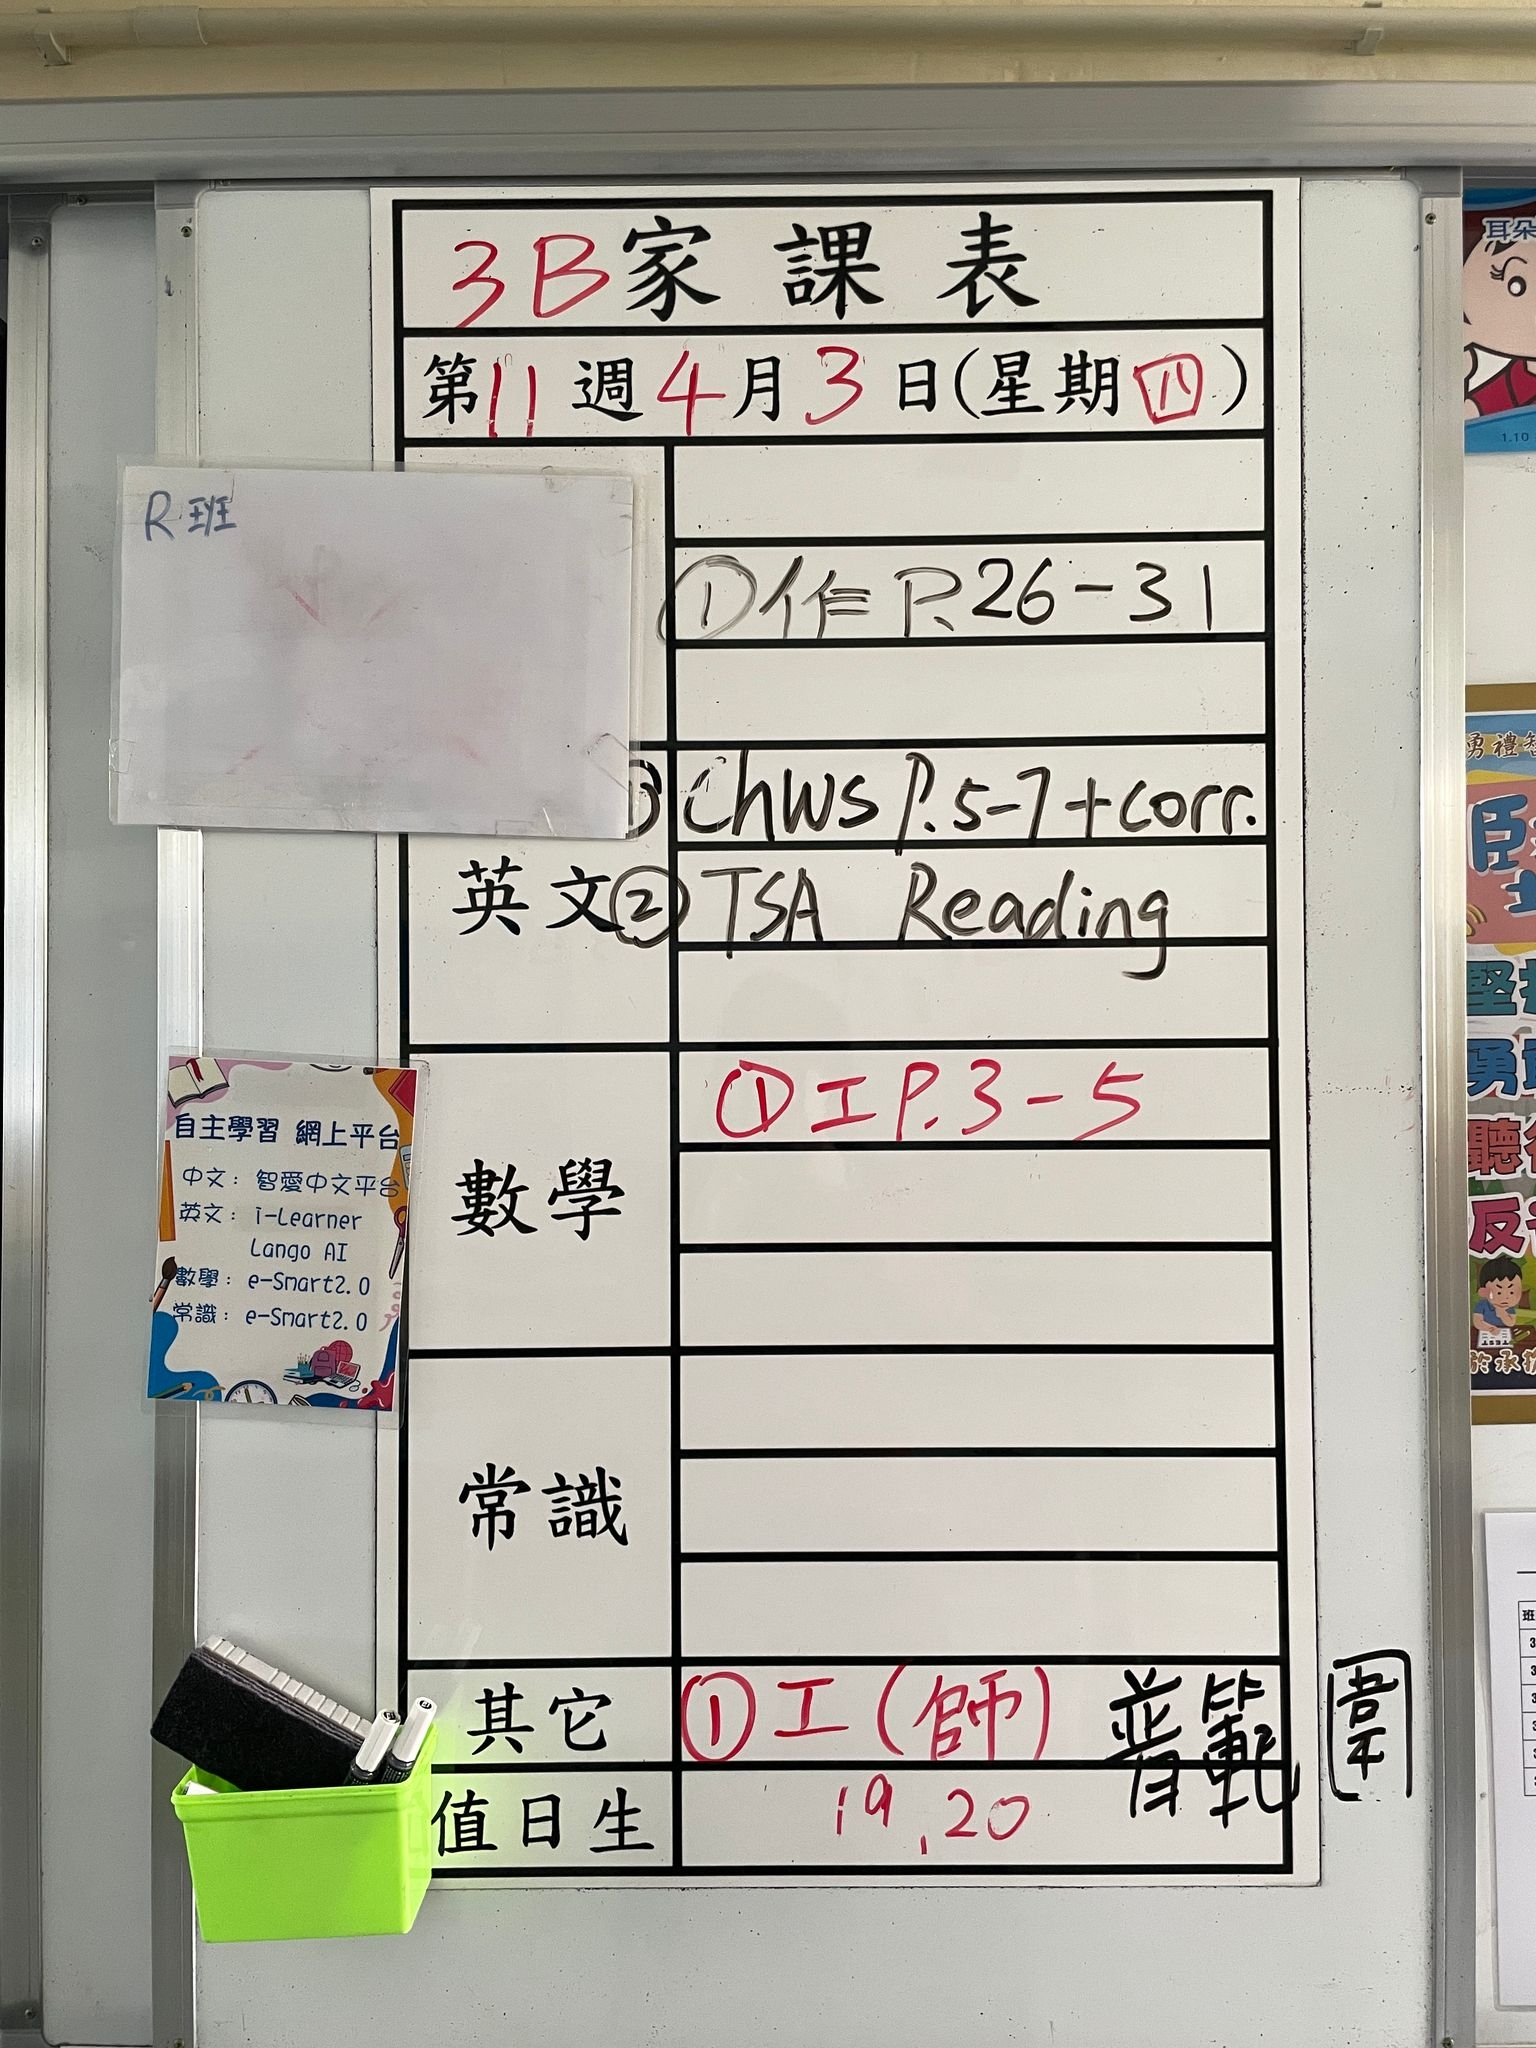 3B家課表
第11週4月3日(星期四)
R班
①作 P.26-31
ChWS P.5-7+corr.
英文 ② TSA Reading
數學
① 工 P.3-5
自主學習 網上平台
中文：智愛中文平台
英文：i-Learner
Lango AI
數學：e-Smart2.0
常識：e-Smart2.0
常識
其它
①工(師) 普範圍
值日生
19,20
耳朵
1.10
勇禮智
堅
勇
聽
反
於承擔
班